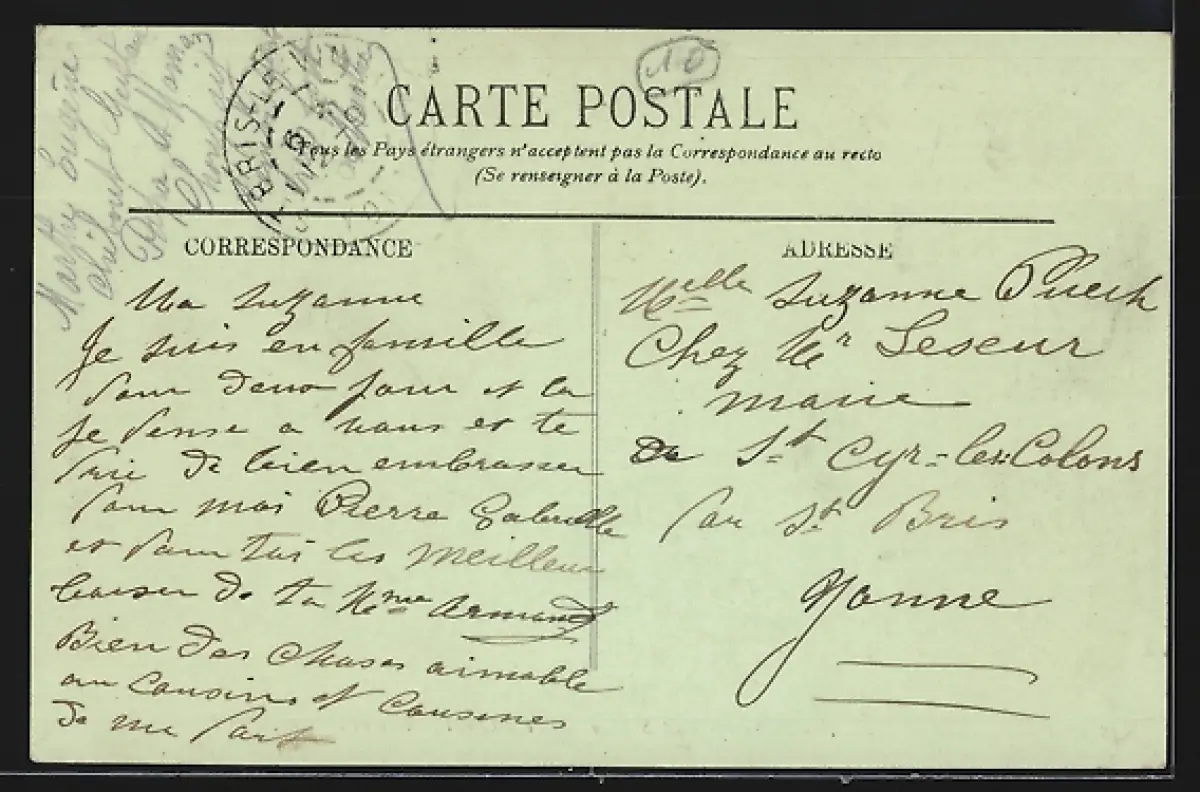 Marthe Eugène
Papa et Maman
10
BRIS-LE-
CARTE POSTALE
Tous les Pays étrangers n'acceptent pas la Correspondance au recto
(Se renseigner à la Poste).
CORRESPONDANCE
Ma Suzanne
Je suis en famille
pour deux jour et la
je pense a vous et te
prie de bien embrasser
pour moi Pierre Gabrielle
et pour toi les meilleur
baiser de ta Mme Armand
Bien des choses aimable
au Cousins et Cousines
de ma part
ADRESSE
Melle Suzanne Puech
Chez Mr Leseur
maire
de St Cyr-les-Colons
par St Bris
Yonne